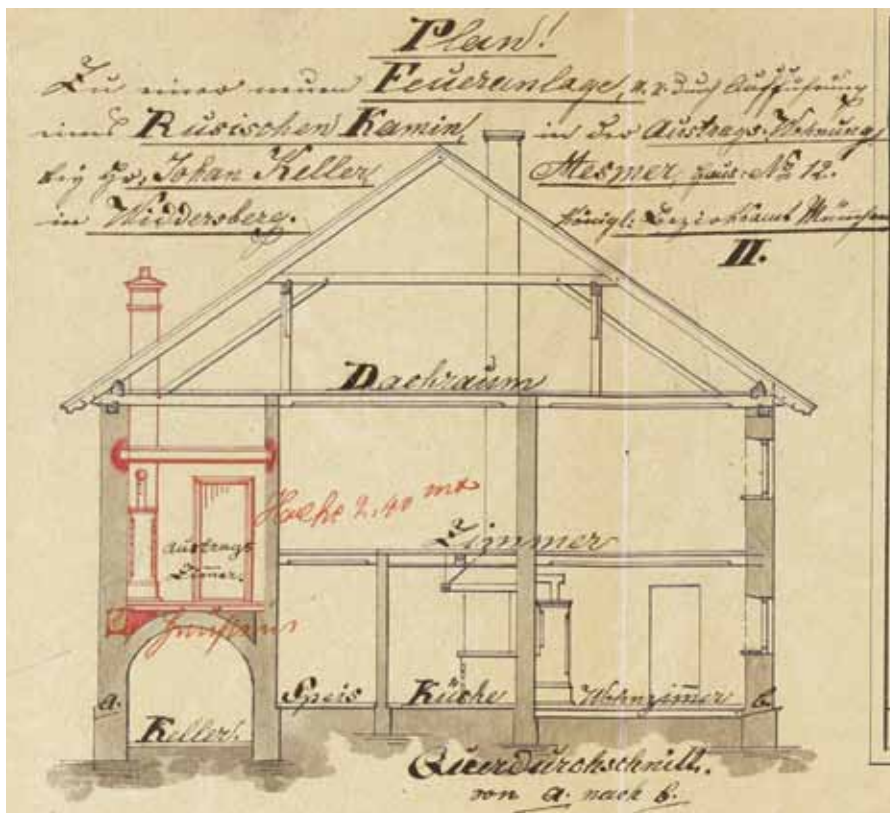 Plan!
Zu einer neuen Feueranlage, durch Aufführung
eines Rusischen Kamin, in der Austrags-Wohnung,
bey Johan Keller, Mesmer, Haus: No 12.
in Widdersberg. Königl: Bezirksamt München
II.
Dachraum
Hoehe 2,40 mt
Austrags
Zimer.
Zimmer
a.
Speis Küche Wohnzimer b.
Keller.
Querdurchschnitt.
von a. nach b.